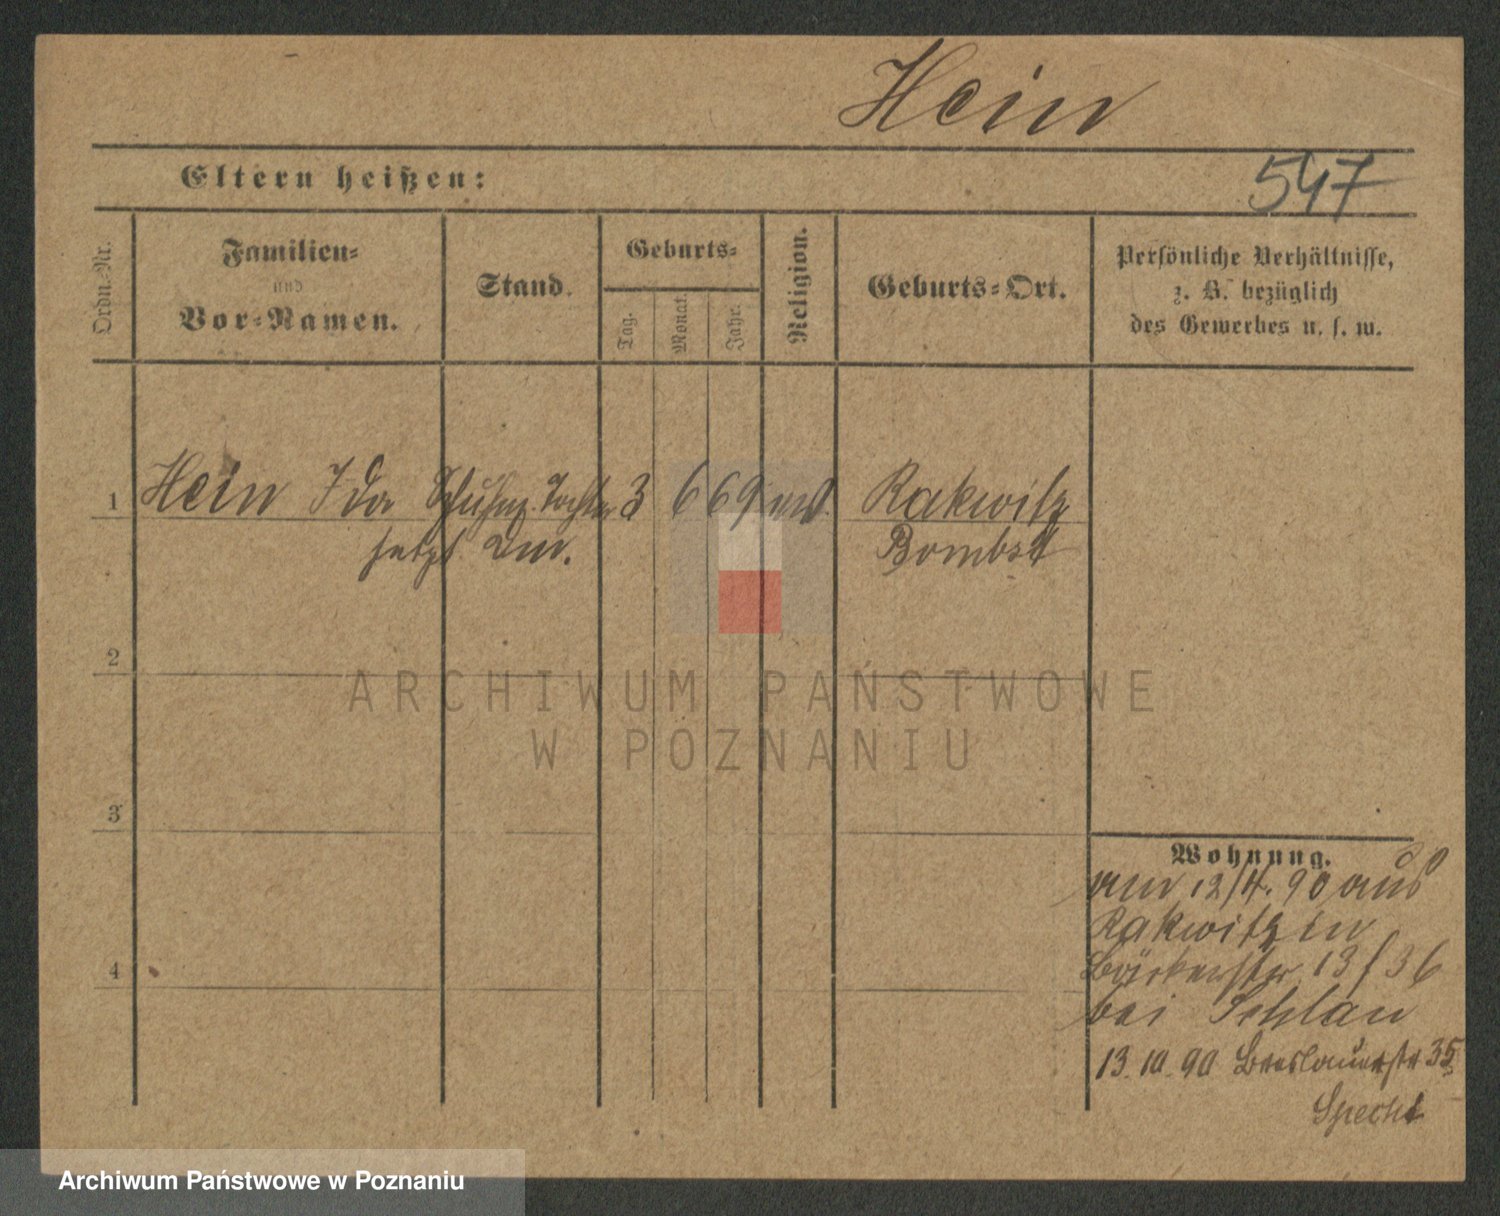 Hein
Eltern heißen:
547
Ordn.-Nr.
Familien-
und
Vor-Namen.
Stand.
Geburts-
Tag.
Monat.
Jahr.
Religion.
Geburts-Ort.
Persönliche Verhältnisse,
z. B. bezüglich
des Gewerbes u. s. w.
1 Hein Ida Schuhm. Tochter 3 6 69 ev. Rakwitz
jetzt Bomst
2
3
4
Wohnung.
am 12/4. 90 aus
Rakwitz in
Bäckerstr. 13/36
bei Schlan
13. 10. 90 Breslauerstr 35
Specht
ARCHIWUM PAŃSTWOWE
W POZNANIU
Archiwum Państwowe w Poznaniu